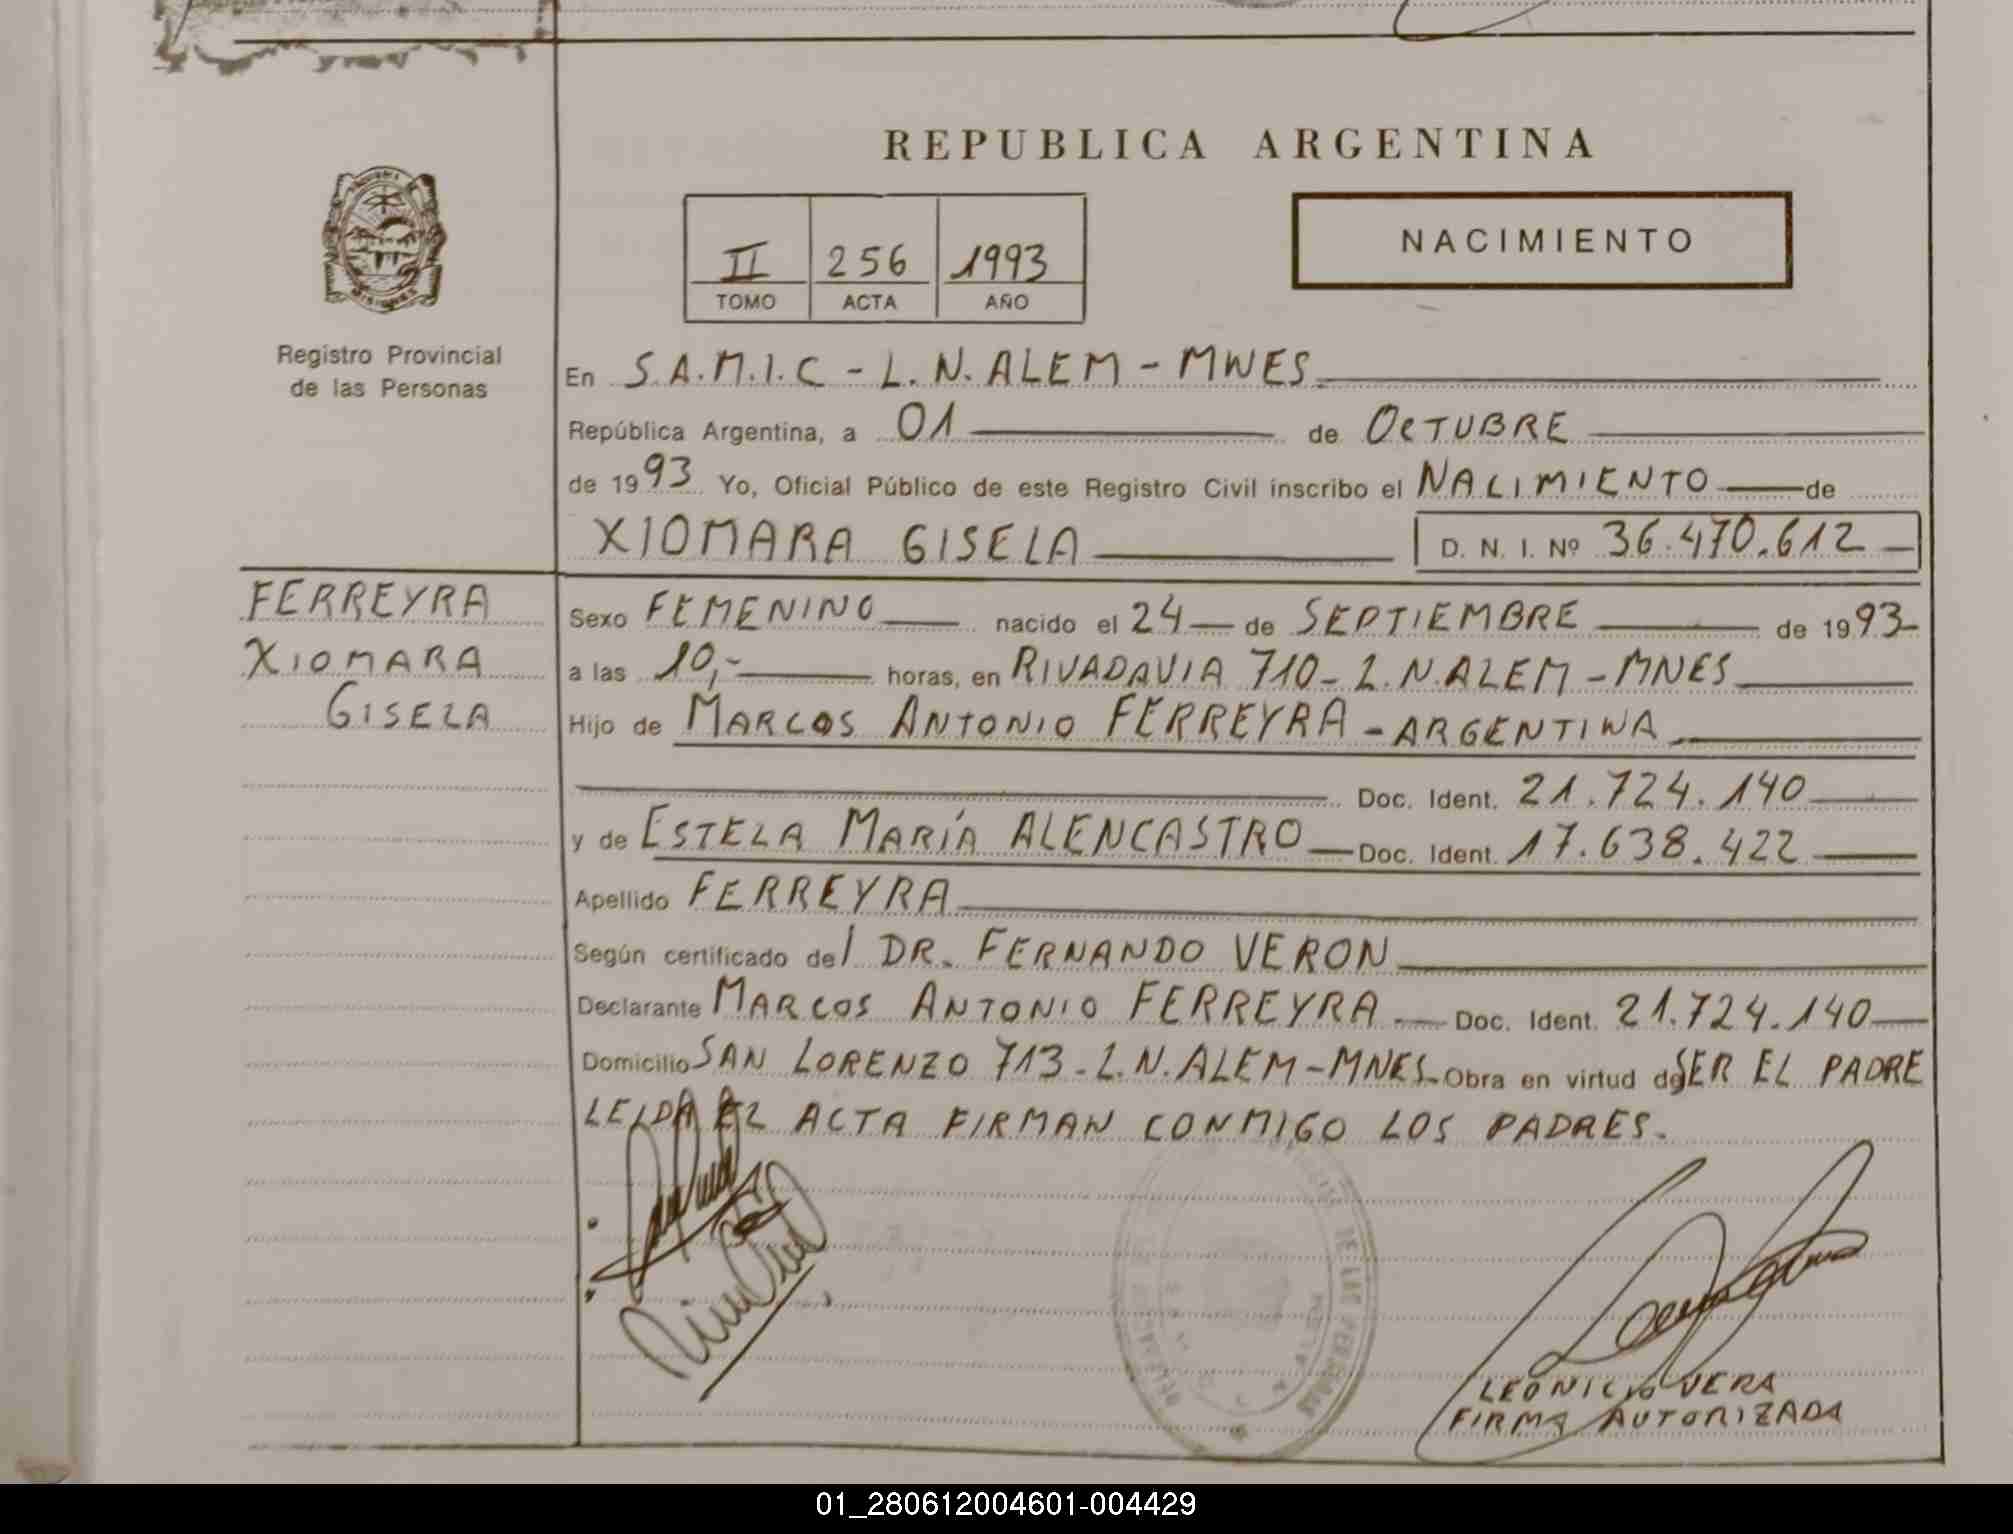 REPUBLICA ARGENTINA
NACIMIENTO
II 256 1993
TOMO ACTA AÑO
MISIONES
Registro Provincial
de las Personas
En S.A.M.I.C - L. N. ALEM - MNES
República Argentina, a 01 de OCTUBRE
de 1993 Yo, Oficial Público de este Registro Civil inscribo el NACIMIENTO de
XIOMARA GISELA D. N. I. Nº 36.470.612
FERREYRA
XIOMARA
GISELA
Sexo FEMENINO nacido el 24 de SEPTIEMBRE de 1993
a las 10,- horas, en RIVADAVIA 710 - L.N. ALEM - MNES
Hijo de MARCOS ANTONIO FERREYRA - ARGENTINA
Doc. Ident. 21.724.140
y de ESTELA MARÍA ALENCASTRO Doc. Ident. 17.638.422
Apellido FERREYRA
Según certificado del DR. FERNANDO VERON
Declarante MARCOS ANTONIO FERREYRA Doc. Ident. 21.724.140
Domicilio SAN LORENZO 713 - L.N. ALEM - MNES. Obra en virtud de SER EL PADRE
LEIDA EL ACTA FIRMAN CONMIGO LOS PADRES.
DE LAS PERSONAS
LEONICIO VERA
FIRMA AUTORIZADA
01_280612004601-004429